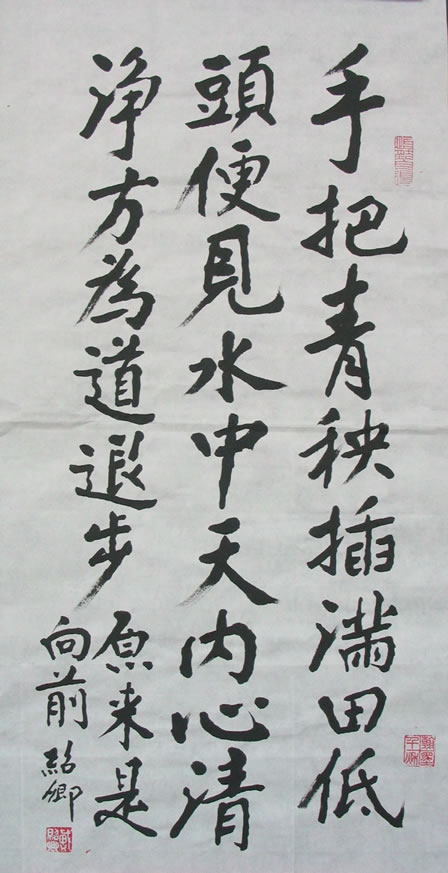 手把青秧插满田低
頭便見水中天内心清
净方為道退步原来是
向前 紹卿